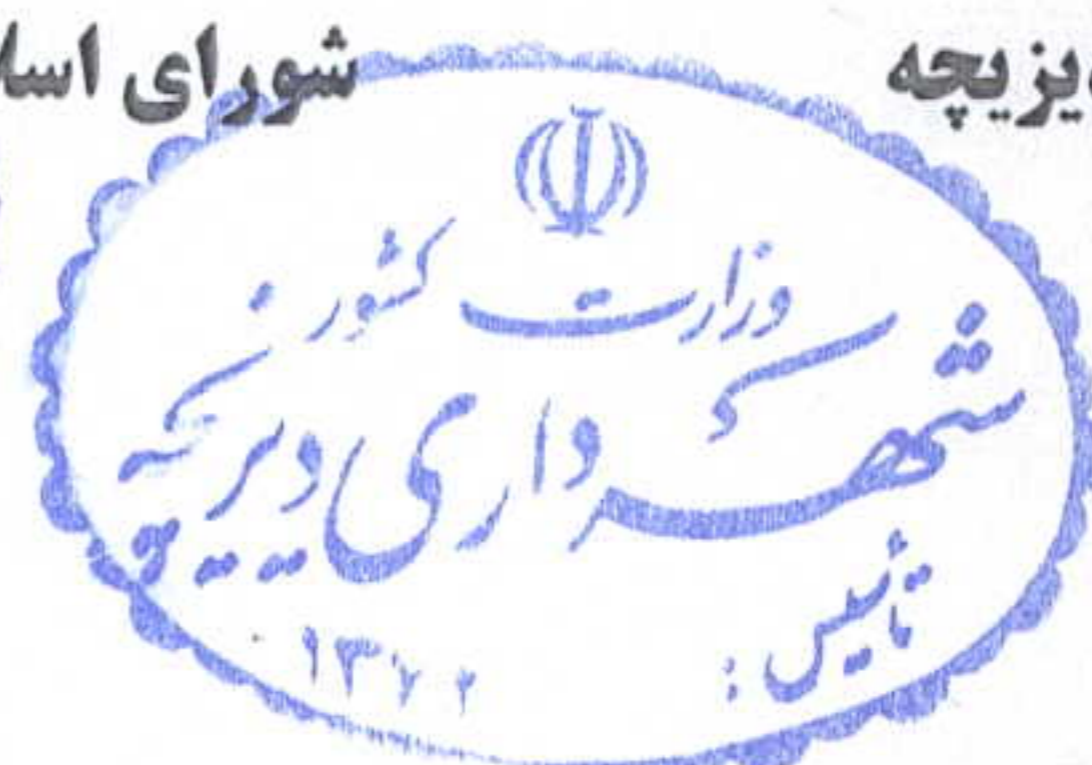 ویزیچه شورای اسلا
وزارت کشور
شهرداری ویزیچه
تأسیس : ۱۳۷۲